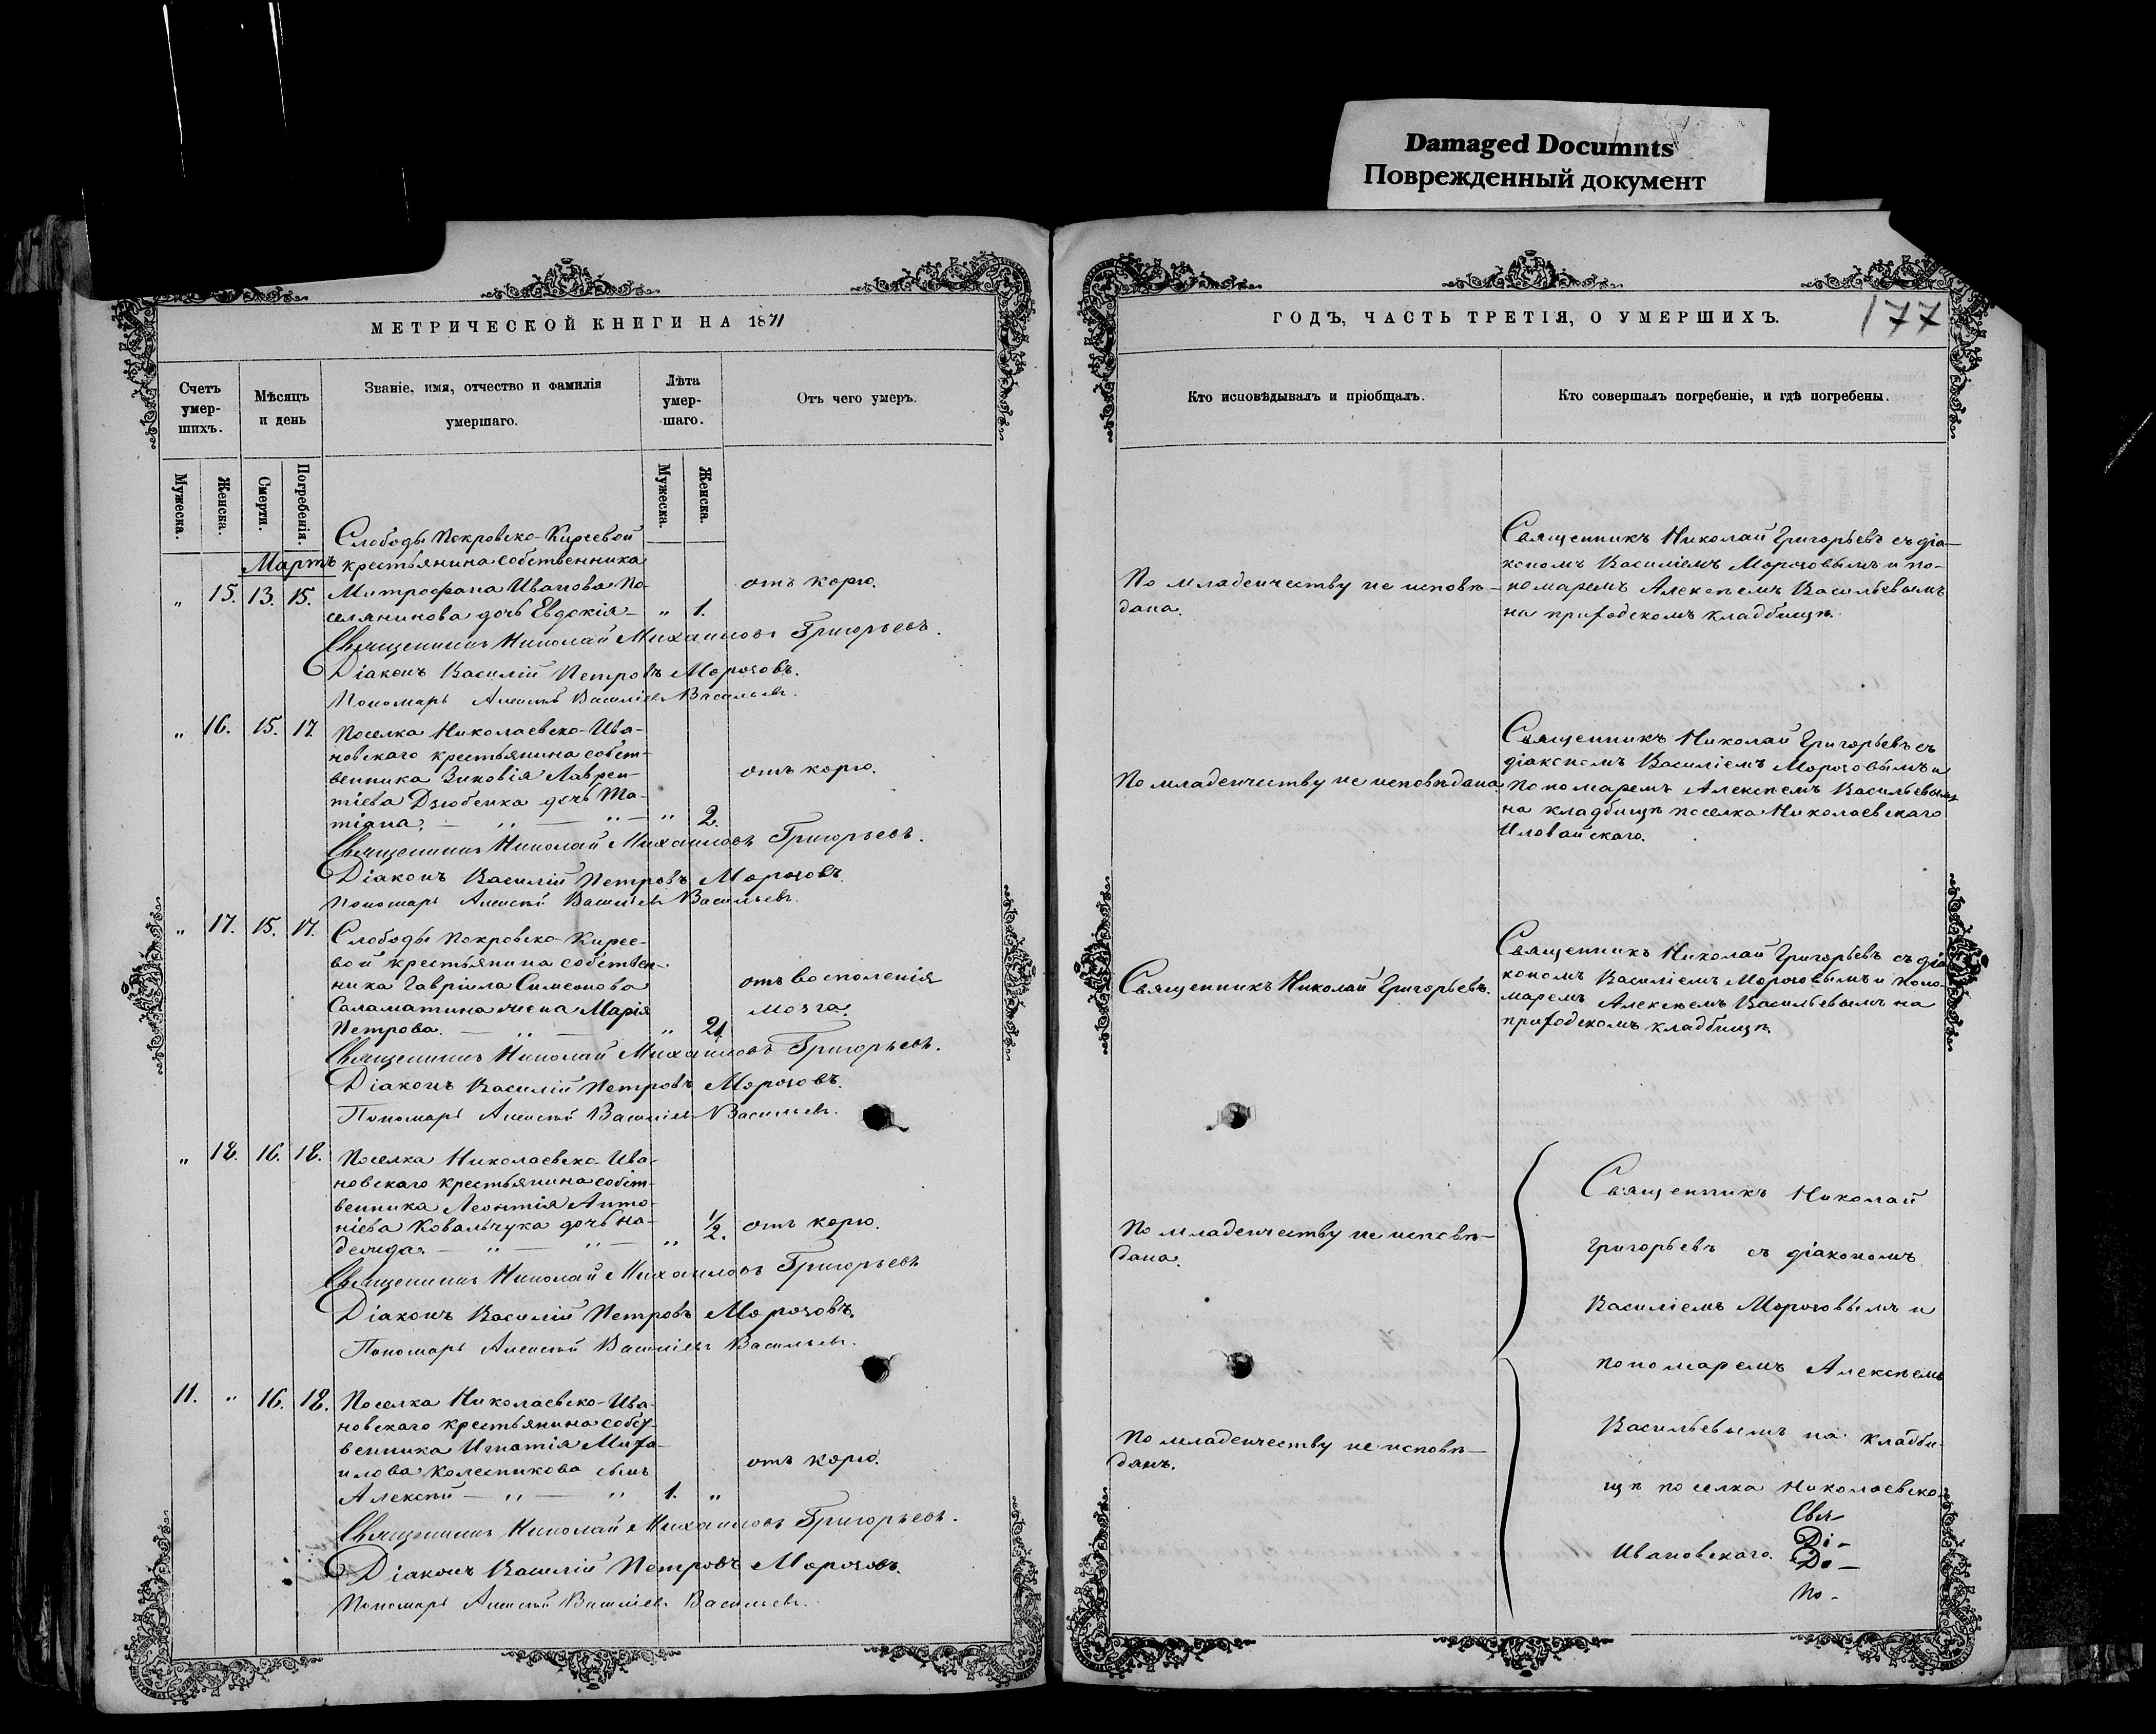 Damaged Documnts
Поврежденный документ
МЕТРИЧЕСКОЙ КНИГИ НА 1871
Счетъ умер-шихъ.
Мѣсяцъ и день
Званіе, имя, отчество и фамилія умершаго.
Лѣта умер-шаго.
Отъ чего умеръ.
Мужеска.
Женска.
Смерти.
Погребенія.
Мужеска.
Женска.
Мартъ
Слободы Покровско-Киреевой
крестьянина собственника
„ 15. 13. 15. Митрофана Иванова По-
селяникова дочь Евдокія — „ 1.
отъ корю.
Священникъ Николай Михаиловъ Григорьевъ.
Діаконъ Василій Петровъ Морозовъ.
Пономарь Алексѣй Василіевъ Васильевъ.
„ 16. 15. 17. Поселка Николаевско-Ива-
новскаго крестьянина собст-
венника Зиновія Лаврен-
тіева Дзюбенка дочь Та-
тіана. — „ — „ — „ 2.
отъ корю.
Священникъ Николай Михаиловъ Григорьевъ.
Діаконъ Василій Петровъ Морозовъ.
Пономарь Алексѣй Василіевъ Васильевъ.
„ 17. 15. 17. Слободы Покровско-Кирее-
вой крестьянина собствен-
ника Гавріила Симеонова
Саламатина жена Марія
Петрова. — „ — „ 21.
отъ восполенія
мозга.
Священникъ Николай Михаиловъ Григорьевъ.
Діаконъ Василій Петровъ Морозовъ.
Пономарь Алексѣй Василіевъ Васильевъ.
„ 18. 16. 18. Поселка Николаевско-Ива-
новскаго крестьянина собст-
венника Леонтія Анто-
ніева Ковальчука дочь На-
дежда. — „ — „ — „ 1/2.
отъ корю.
Священникъ Николай Михаиловъ Григорьевъ
Діаконъ Василій Петровъ Морозовъ.
Пономарь Алексѣй Василіевъ Васильевъ.
11. „ 16. 18. Поселка Николаевско-Ива-
новскаго крестьянина собст-
венника Игнатія Миха-
илова Колесникова сынъ
Алексѣй — „ — „ 1. „
отъ корю.
Священникъ Николай Михаиловъ Григорьевъ.
Діаконъ Василій Петровъ Морозовъ.
Пономарь Алексѣй Василіевъ Васильевъ.
ГОДЪ, ЧАСТЬ ТРЕТІЯ, О УМЕРШИХЪ.
177
Кто исповѣдывалъ и пріобщалъ.
Кто совершалъ погребеніе, и гдѣ погребены.
По младенчеству не исповѣ-
дана.
Священникъ Николай Григорьевъ съ діа-
кономъ Василіемъ Морозовымъ и по-
номаремъ Алексѣемъ Васильевымъ
на приходскомъ кладбищѣ.
По младенчеству не исповѣдана.
Священникъ Николай Григорьевъ съ
діакономъ Василіемъ Морозовымъ и
Пономаремъ Алексѣемъ Васильевымъ
на кладбищѣ поселка Николаевскаго
Иловайскаго.
Священникъ Николай Григорьевъ.
Священникъ Николай Григорьевъ съ діа
кономъ Василіемъ Морозовымъ и поно-
маремъ Алексѣемъ Васильевымъ на
приходскомъ кладбищѣ.
По младенчеству не исповѣ-
дана.
По младенчеству не исповѣ-
данъ.
Священникъ Николай
Григорьевъ съ діакономъ
Василіемъ Морозовымъ и
пономаремъ Алексѣемъ
Васильевымъ на кладби-
щѣ поселка Николаевско-
Ивановскаго.
Свя-
Ді-
До-
По-